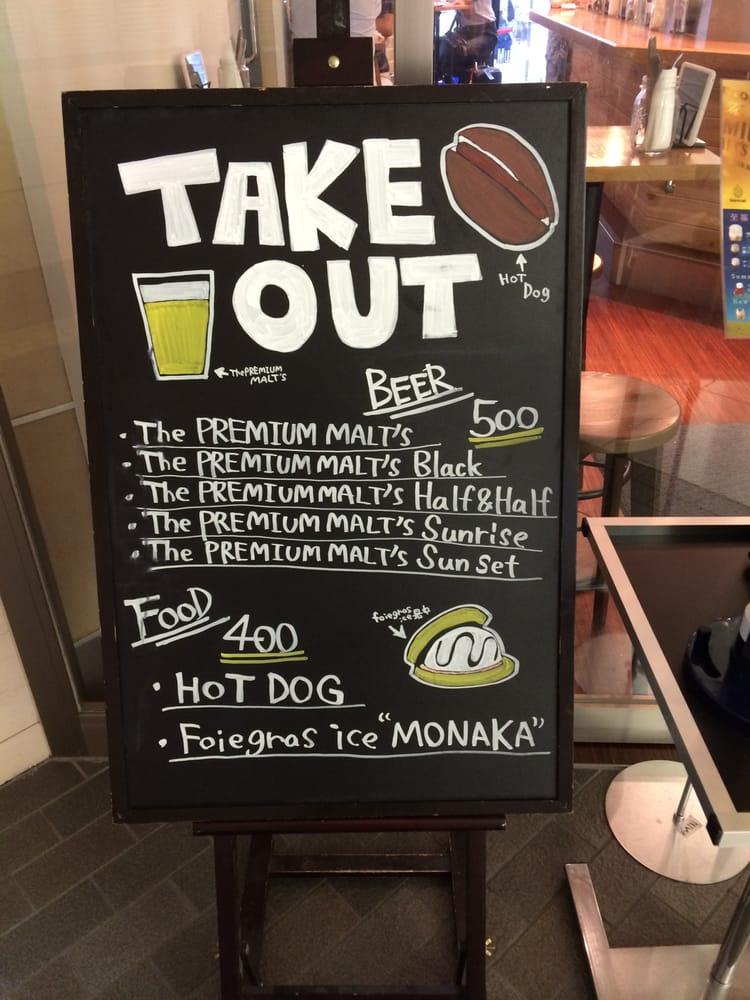 TAKE
OUT
HOT
Dog
The PREMIUM
MALT'S
BEER
500
· The PREMIUM MALT'S
· The PREMIUM MALT'S Black
· The PREMIUM MALT'S Half&Half
· The PREMIUM MALT'S Sunrise
· The PREMIUM MALT'S Sunset
FOOD
400
foiegras
ice最中
· HOT DOG
· Foiegras ice "MONAKA"